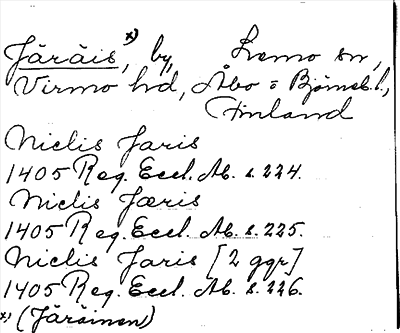 Järäis*), by, Lemo sn,
Virmo hd, Åbo o Björneb. l.,
Finland
Niclis Jaris
1405 Reg. Eccl. Ab. s. 224.
Niclis Jæris
1405 Reg. Eccl. Ab. s. 225.
Niclis Jaris [2 ggr]
1405 Reg. Eccl. Ab. s. 226.
*) (Järäinen)